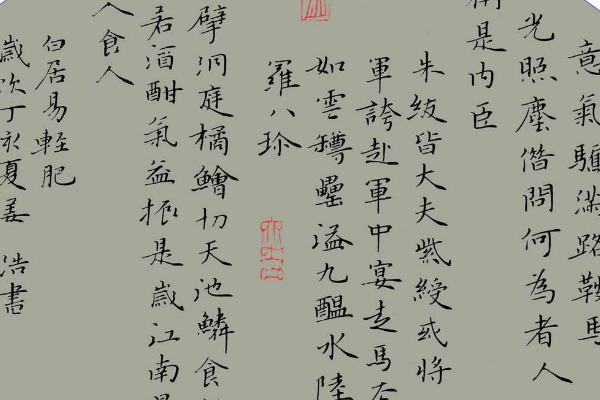 意氣驕滿路鞍馬
光照塵借問何為者人
是内臣
朱紱皆大夫紫綬或將
軍誇赴軍中宴走馬去
如雲罇罍溢九醞水陸
羅八珍
擘洞庭橘鱠切天池鱗食
若酒酣氣益振是歲江南
人食人
白居易輕肥
歲次丁亥夏姜浩書